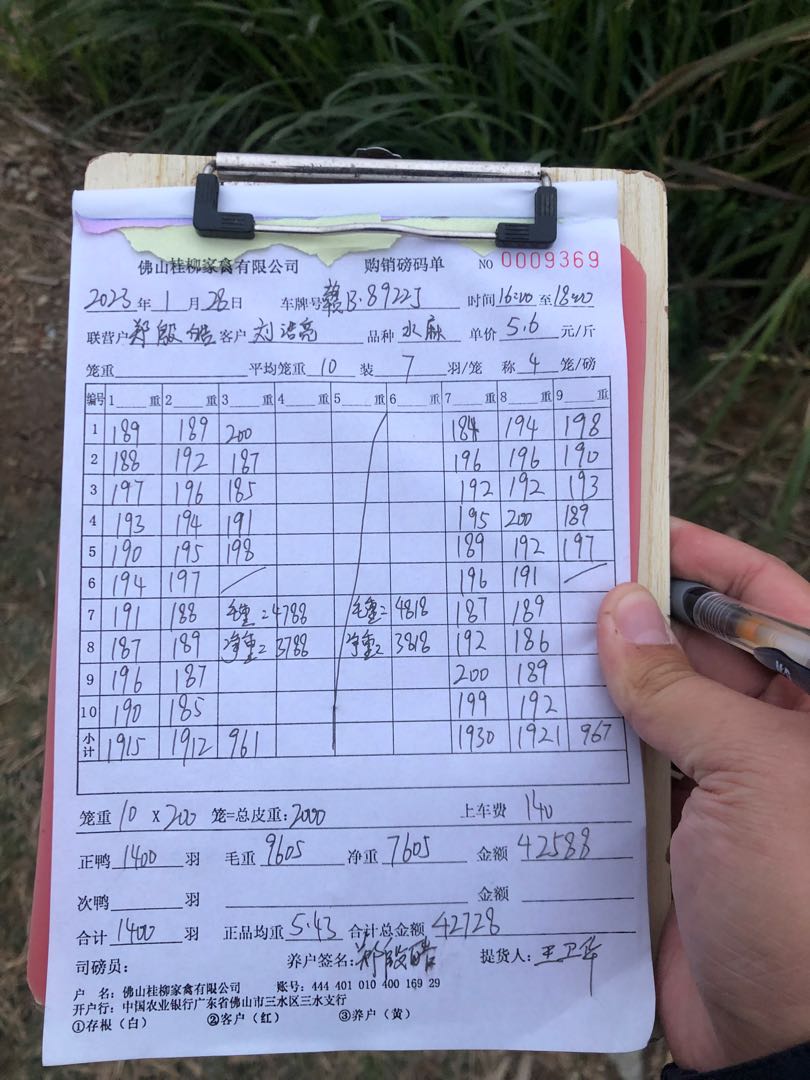 佛山桂柳家禽有限公司 购销磅码单 NO 0009369
2023年 1 月 28 日 车牌号 赣B·8922J 时间 16:00 至 18:00
联营户 郑殷皓 客户 刘浩亮 品种 水麻 单价 5.6 元/斤
笼重 平均笼重 10 装 7 羽/笼 称 4 笼/磅
编号 1 重 2 重 3 重 4 重 5 重 6 重 7 重 8 重 9 重
1 189 189 200 184 194 198
2 188 192 187 196 196 190
3 197 196 185 192 192 193
4 193 194 191 195 200 189
5 190 195 198 189 192 197
6 194 197 / 196 191 /
7 191 188 毛重=4788 毛重=4818 187 189
8 187 189 净重=3788 净重=3818 192 186
9 196 187 200 189
10 190 185 199 192
小计 1915 1912 961 1930 1921 967
笼重 10 X 200 笼=总皮重:2000 上车费 140
正鸭 1400 羽 毛重 9605 净重 7605 金额 42588
次鸭 羽 金额
合计 1400 羽 正品均重 5.43 合计总金额 42728
司磅员: 养户签名: 郑殷皓 提货人: 王卫华
户 名: 佛山桂柳家禽有限公司 账号: 444 401 010 400 169 29
开户行: 中国农业银行广东省佛山市三水区三水支行
①存根(白) ②客户(红) ③养户(黄)